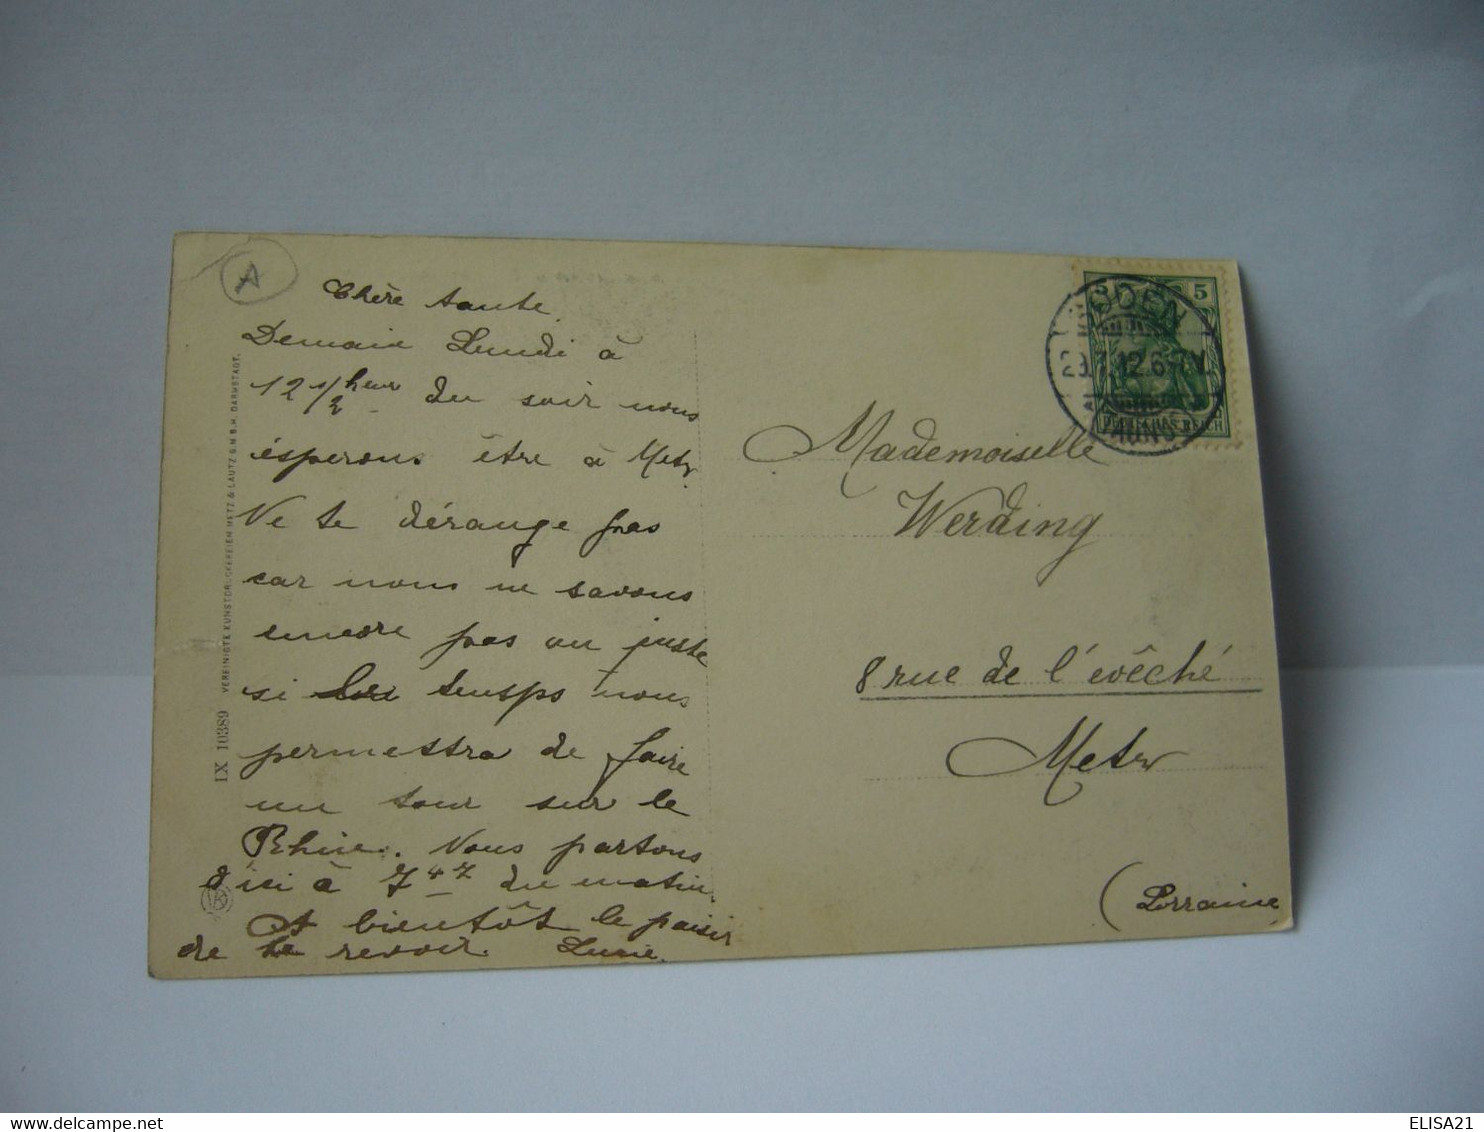 A
Chère tante.
Demain Lundi à
12 1/2 heur du soir nous
ésperons être à Metz
Ne te dérange pas
car nous ne savons
encore pas au juste
si le temps nous
permettra de faire
un tour sur le
Rhin. Nous partons
d'ici à 7 47 du matin.
A bientôt le paisir
de te revoir. Lucie.
IX 10389 VEREINIGTE KUNSTDRUCKEREIEN METZ & LAUTZ G.M.B.H. DARMSTADT.
5
SODEN
DEUTSCHES REICH
Mademoiselle
Werding
8 rue de l'évêché
Metz
(Lorraine
delcampe.net
ELISA21